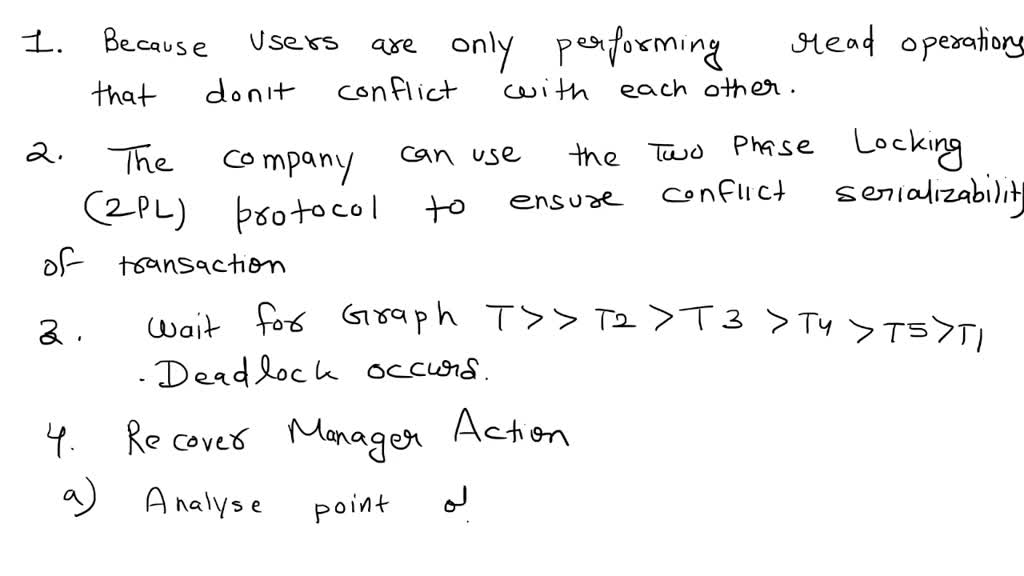 1. Because users are only performing read operations
that don't conflict with each other.
2. The company can use the Two Phase Locking
(2PL) protocol to ensure conflict serializability
of transaction
3. wait for Graph T>> T2 >T3 >T4 >T5>T1
. Deadlock occurs.
4. Recover Manager Action
a) Analyse point